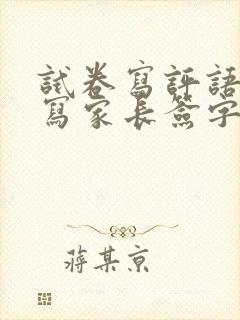 試卷寫評語
寫家長簽字
蔣某京